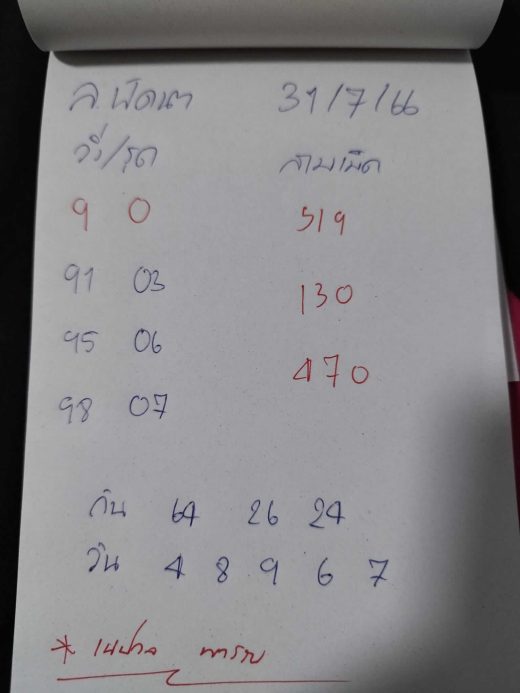 ล.พัฒนา 31/7/66
วิ่ง/รูด สามเม็ด
9 0 519
91 03
130
95 06
470
98 07
กัน 64 26 24
วิน 4 8 9 6 7
*